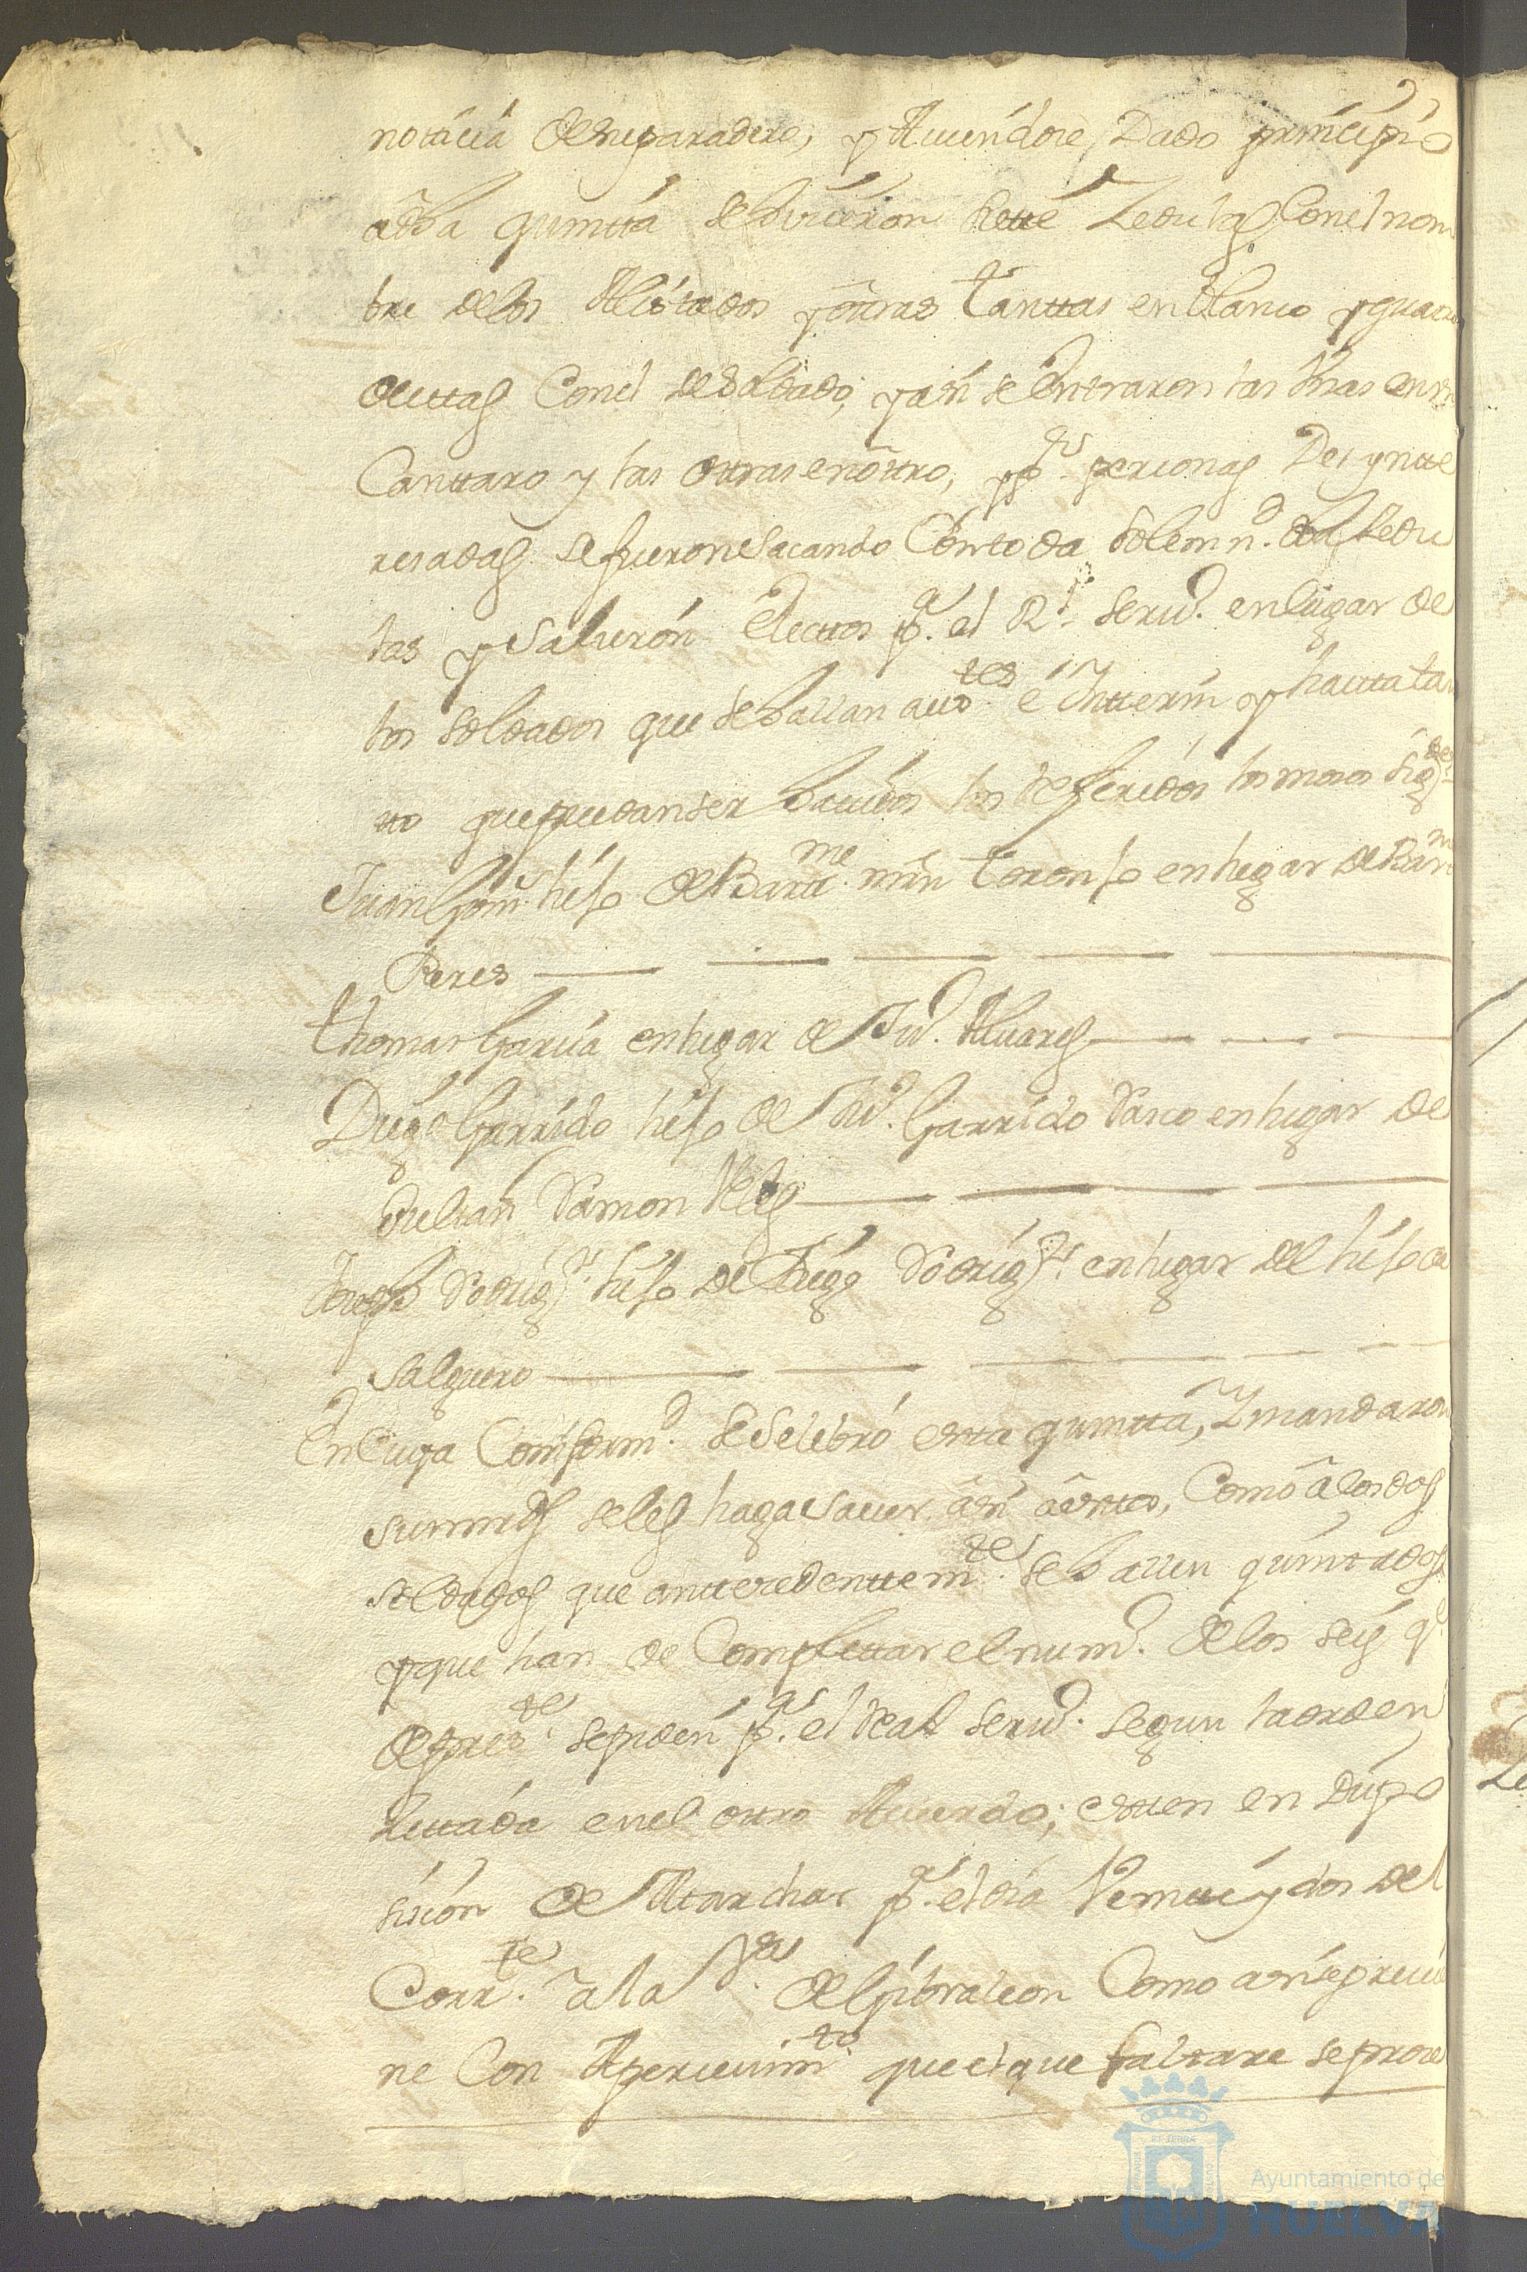 noticia de su paradero, y Auiendose Dado principio
adha quintta se hicieron siette Zedulas Con el nom
bre de los Alistados y otras tanttas en blanco y quatro
de ettas Con el de soldado, y asi se entraron las Unas en un
Canttaro y las ottras en ottro, y pr personas Des yntte
resadas se fueron sacando Con toda solemnd. dhas Zedu
las y salieron electtos pa. el Rl. seruo. en lugar de
los soldados que se hallan austes. e Ynterin y hastta tan
tto que puedan ser hauidos los referidos los mosos sigtes
Juan Gom hijo de Bartme. mrn toronjo en lugar de Barme
Peres
thomas Garcia en lugar de Juo. Aluares
Diego Garrido hijo de Juo. Garrido Vasco en lugar de
Julian Ramon Veles
Joseph Rodrigs. hijo de Diego Rodrigs. en lugar del hijo de
Salguero
En Cuya Comformd. se Selebró esta quintta, Y mandaron
sus mrds se les haga sauer asi a esttos, Como a los dos
soldados que anttecedenttemte. se hallen quintados
y que han de Complettar el numo. de los seis qe
de preste. se piden pa. el Real seruo. segun la orden
zittada en el ottro Acuerdo; estten en Dispo
sicion de Marchar pa. el dia Veintte y dos del
Corrte. a la Va. de Gibraleon Como asi se preuie
ne Con Aperceuimto. que el que faltare se proce
Ayuntamiento de
HUELVA